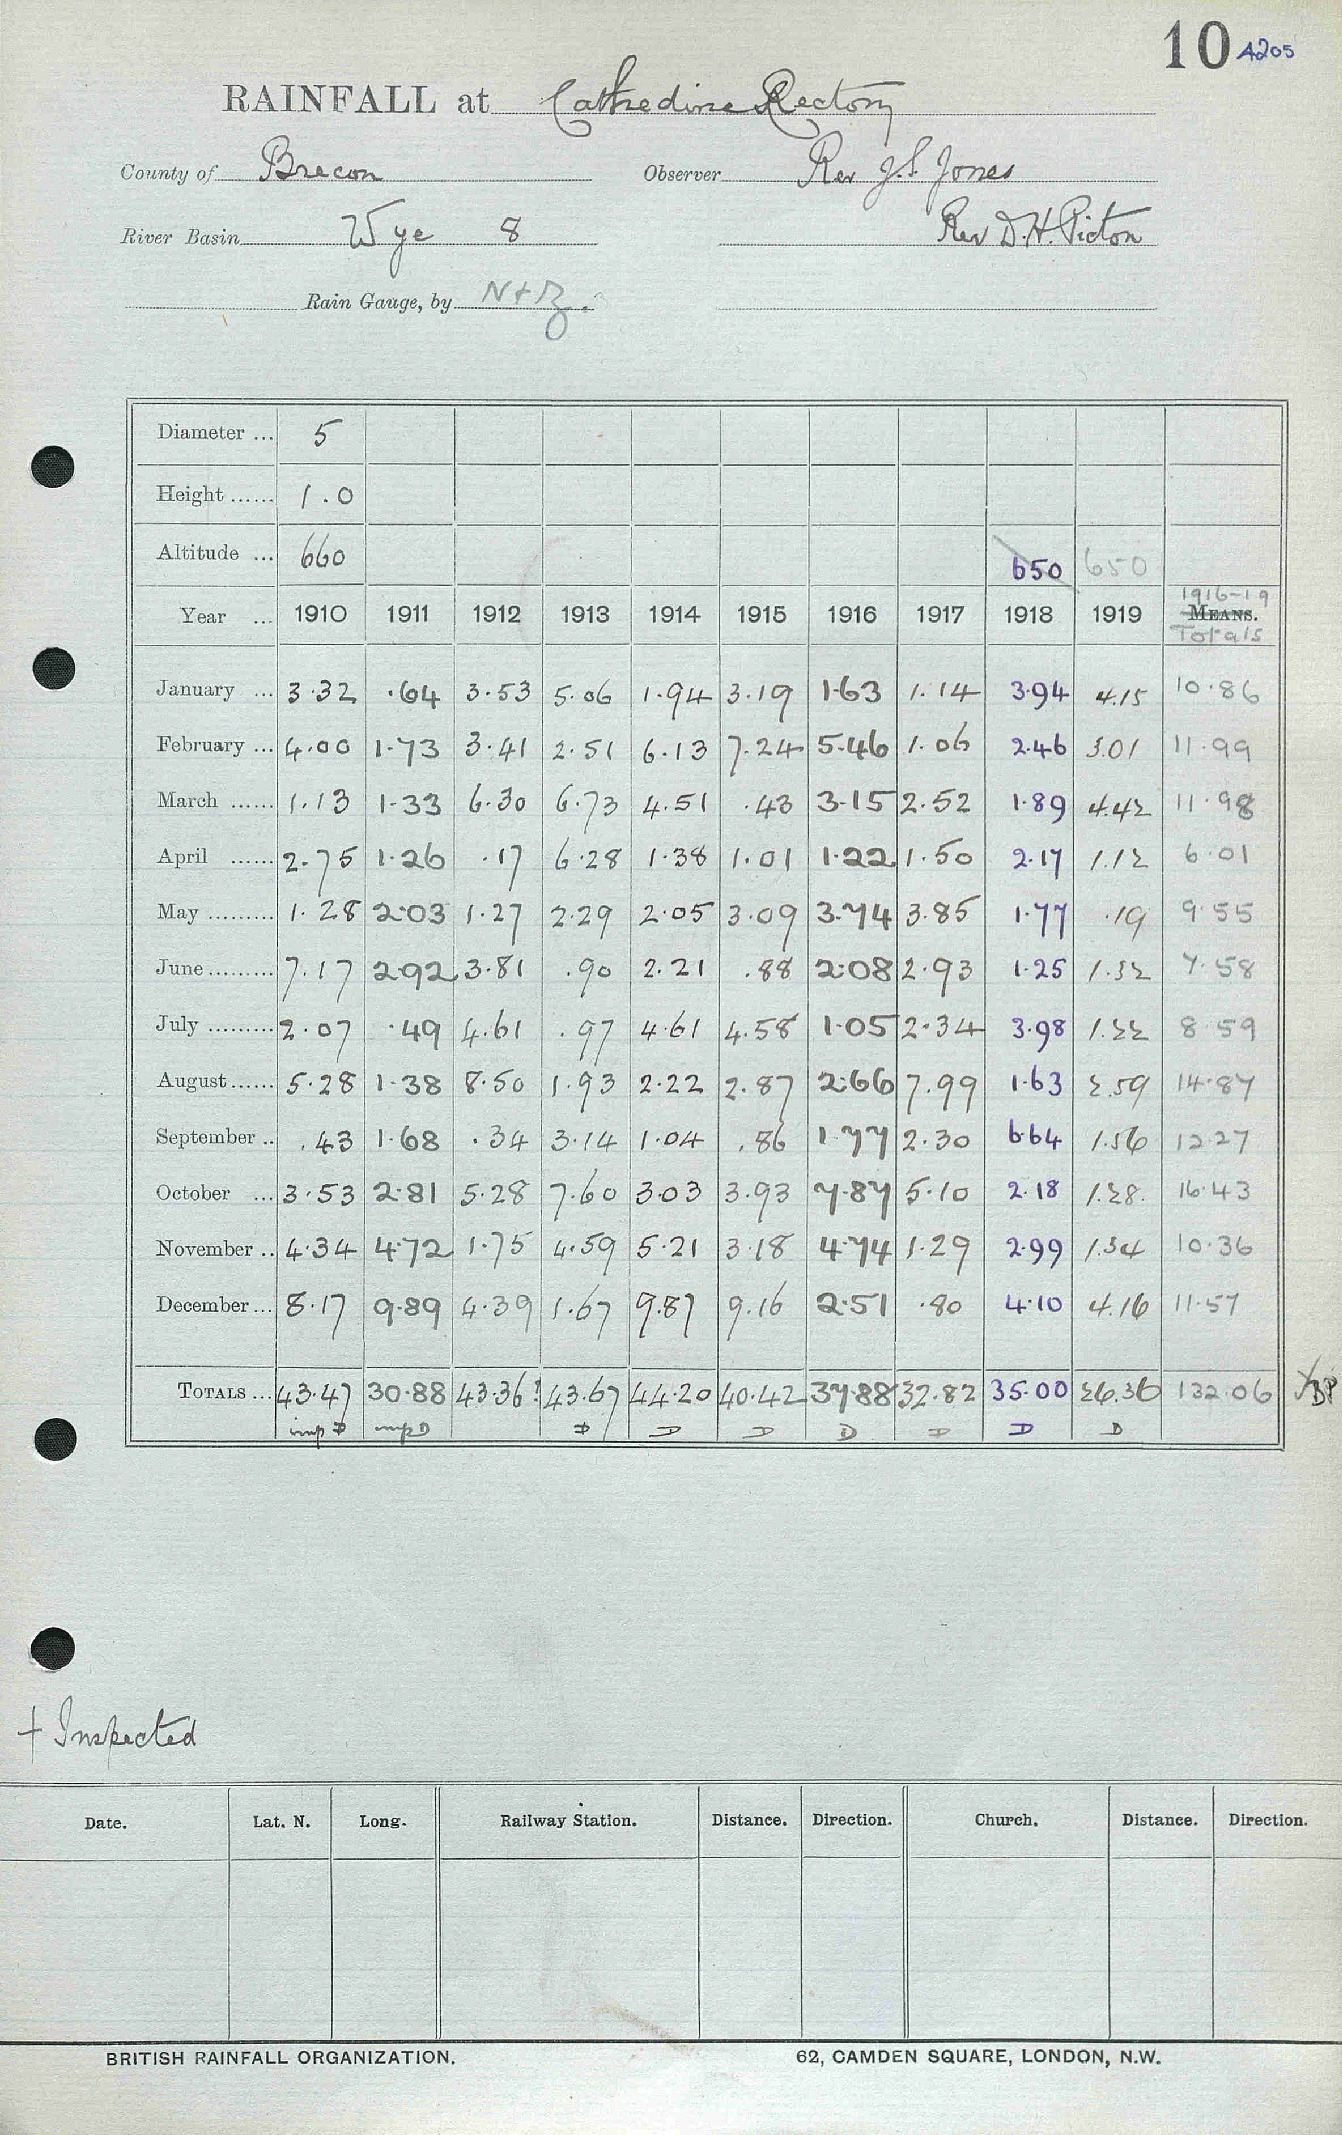 10 A205
RAINFALL at Cathedine Rectory
County of Brecon Observer Rev J.S. Jones
River Basin Wye 8 Rev D.H. Picton
Rain Gauge, by N+Z.
Diameter ... 5
Height ...... 1.0
Altitude ... 660 650 650
1916-19
Year ... 1910 1911 1912 1913 1914 1915 1916 1917 1918 1919 MEANS.
Totals
January ... 3.32 .64 3.53 5.06 1.94 3.19 1.63 1.14 3.94 4.15 10.86
February ... 4.00 1.73 3.41 2.51 6.13 7.24 5.46 1.06 2.46 3.01 11.99
March ...... 1.13 1.33 6.30 6.73 4.51 .43 3.15 2.52 1.89 4.42 11.98
April ...... 2.75 1.26 .17 6.28 1.38 1.01 1.22 1.50 2.17 1.12 6.01
May ......... 1.28 2.03 1.27 2.29 2.05 3.09 3.74 3.85 1.77 .19 9.55
June ......... 7.17 2.92 3.81 .90 2.21 .88 2.08 2.93 1.25 1.32 7.58
July ......... 2.07 .49 4.61 .97 4.61 4.58 1.05 2.34 3.98 1.22 8.59
August ...... 5.28 1.38 8.50 1.93 2.22 2.87 2.66 7.99 1.63 2.59 14.87
September .. .43 1.68 .34 3.14 1.04 .86 1.77 2.30 6.64 1.56 12.27
October ... 3.53 2.81 5.28 7.60 3.03 3.93 7.87 5.10 2.18 1.28. 16.43
November .. 4.34 4.72 1.75 4.59 5.21 3.18 4.74 1.29 2.99 1.34 10.36
December ... 8.17 9.89 4.39 1.67 9.87 9.16 2.51 .80 4.10 4.16 11.57
TOTALS ... 43.47 30.88 43.36? 43.67 44.20 40.42 37.88 32.82 35.00 26.36 132.06
imp D imp D D D D D D D D
+ Inspected
Date. Lat. N. Long. Railway Station. Distance. Direction. Church. Distance. Direction.
BRITISH RAINFALL ORGANIZATION. 62, CAMDEN SQUARE, LONDON, N.W.